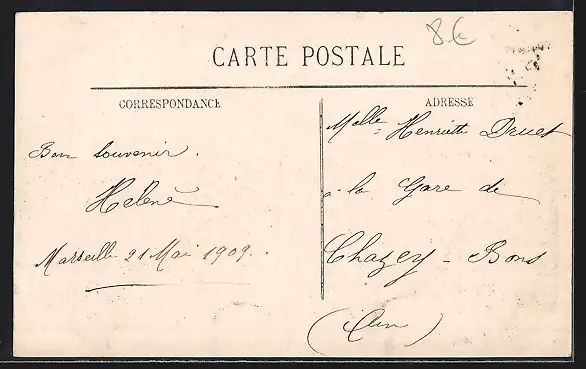 8€
CARTE POSTALE
CORRESPONDANCE
ADRESSE
Bon souvenir.
Helène
Marseille 21 Mai 1909.
Melle Henriette Druet
à la Gare de
Chazey - Bons
(Ain)